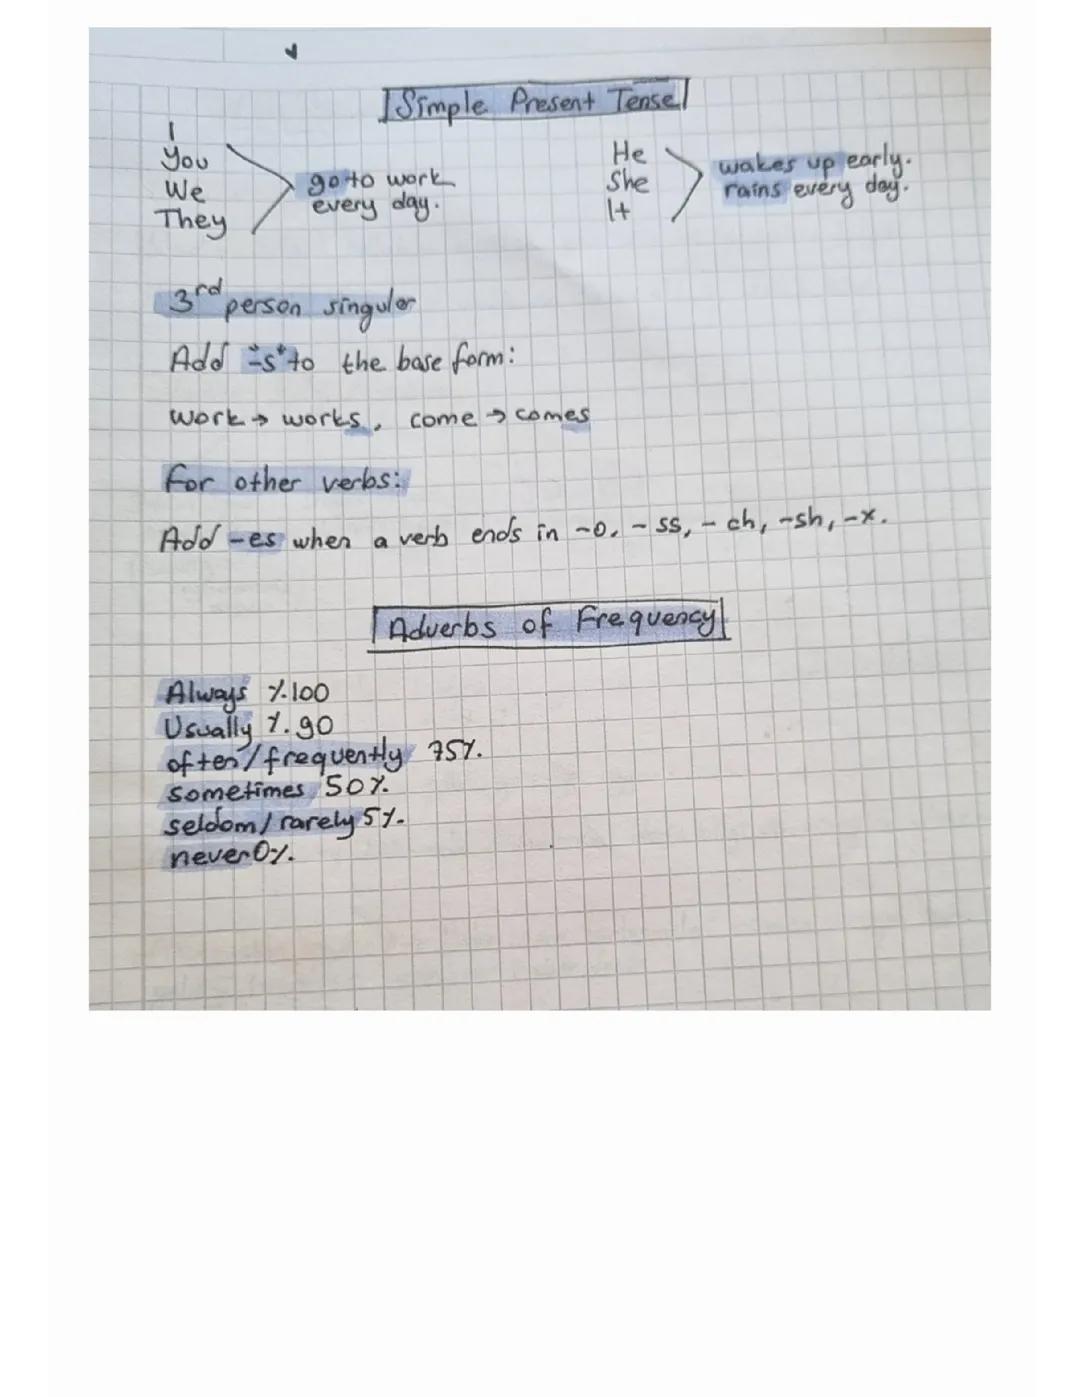 Simple Present Tense
I
You
We
They
go to work
every day.
He
She
It
wakes up early.
rains every day.
3rd person singular
Add "-s" to the base form:
work → works, come → comes
For other verbs:
Add -es when a verb ends in -o, -ss, -ch, -sh, -x.
Adverbs of Frequency
Always %100
Usually %90
often/frequently 75%
sometimes 50%
seldom/rarely 5%
never 0%